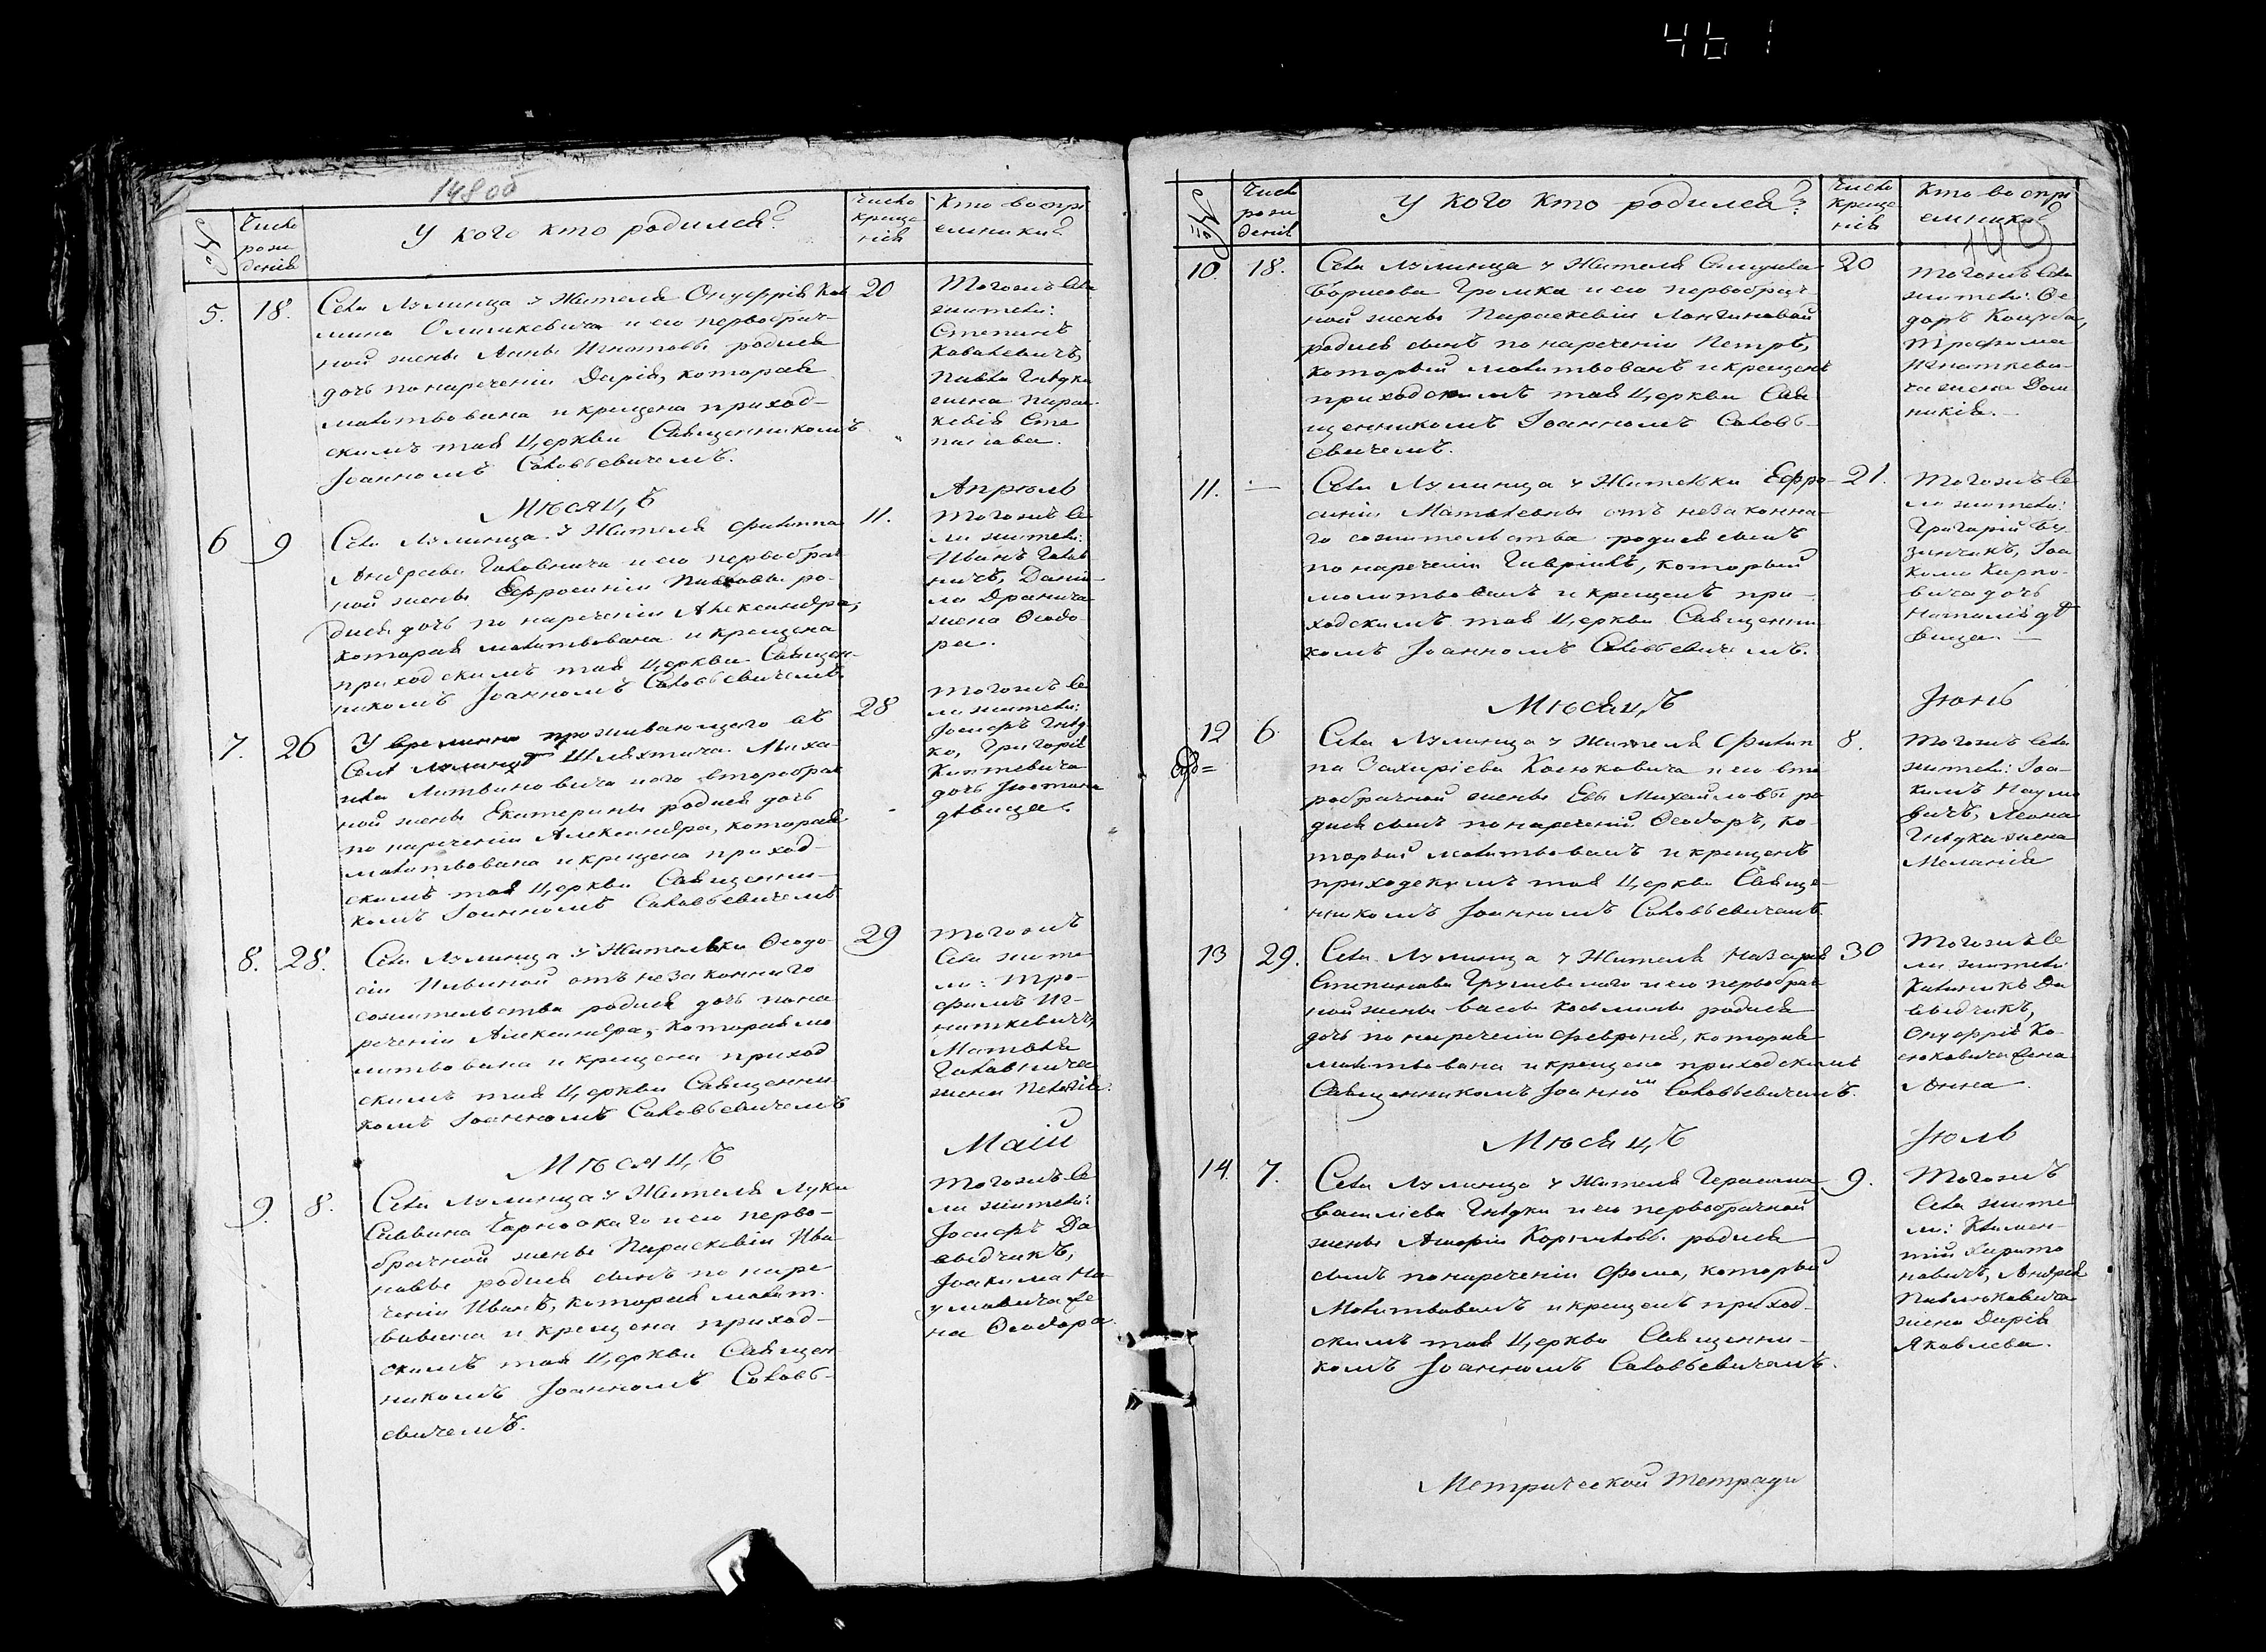 461
14800
№
Число рожденія
У кого кто родился?
Число крещенія
Кто воспріемники?
5. 18.
Села Лулинца у Жителя Онуфрія
и его первобрач-
ной жены Анны Игнатовы родися
дочь по наречении Дарія, которая
молитвована и крещена приход-
скимъ тоя Церкви Священникомъ
Іоанномъ Соловьевичемъ.
20
Тогожъ села
жители:
Степанъ
Ковалевичъ,
Павла Гнѣдка
жена Параскевія
Мѣсяцъ
Апрѣль
6 9
Села Лулинца у Жителя Филиппа
Андреева и его первобрач
ной жены Ефросиніи Павловы ро-
дися дочь по наречении Александра,
которая молитвована и крещена
приходскимъ тоя Церкви Священ-
никомъ Іоанномъ Соловьевичемъ.
11.
Тогожъ се
ла жители:
Иванъ
Дании-
ла
жена Феодо-
ра.
7. 26
У временно проживающего въ
Селѣ Шляхтича Миха-
ила Литвиновича и его второбрач
ной жены Екатерины родися дочь
по наречении Александра, которая
молитвована и крещена приход-
скимъ тоя Церкви Священни-
комъ Іоанномъ Соловьевичемъ
28
Тогожъ се
ла жители:
Іосифъ Гнѣд
ко, Григорія
дочь
дѣвица.
8. 28.
Села Лулинца у Жительки Феодо-
сіи отъ незаконнаго
сожительства родися дочь по на
речении Александра, которая мо
литвована и крещена приход
скимъ тоя Церкви Священни-
комъ Іоанномъ Соловьевичемъ
29
Тогожъ
Села жите
ли: Тро-
фимъ Иг-
наткевичъ,
Матвѣя
жена Пелагія.
Мѣсяцъ
Маій
9. 8.
Села Лулинца у Жителя Луки
и его перво-
брачной жены Параскевіи Ива-
новы родися сынъ по наре
чении Иванъ, которая молит-
вована и крещена приход-
скимъ тоя Церкви Священ
никомъ Іоанномъ Соловь-
евичемъ.
Тогожъ се
ла жители:
Іосифъ Да
выдчикъ,
Іоакима На-
умовича же
на Феодора.
№
Число рожденія
У кого кто родился?
Число крещенія
Кто воспріемники?
10. 18.
Села Лулинца у Жителя Самуила
Борисова Громка и его первобрач
ной жены Параскевіи Лонгиновой
родися сынъ по наречении Петръ,
который молитвованъ и крещенъ
приходскимъ тоя Церкви Свя
щенникомъ Іоанномъ Соловь-
евичемъ.
20
Тогожъ села
жители: Фе
доръ
Трофима
Игнаткеви-
ча жена Дом
никія.
11. —
Села Лулинца у Жительки Ефро-
синіи Матвѣевны отъ незаконна-
го сожительства родися сынъ
по наречении Гавріилъ, который
молитвованъ и крещенъ при-
ходскимъ тоя Церкви Священни
комъ Іоанномъ Соловьевичемъ.
21.
Тогожъ се
ла жители:
Григорій
Іоа
кима Карпо-
вича дочь
Наталія дѣ
вица.
Мѣсяцъ
Іюнь
12 6
Села Лулинца у Жителя Филип
па Захаріева Косюковича и его вто
робрачной жены Евы Михайловы ро
дися сынъ по наречении Феодоръ, ко-
торый молитвованъ и крещенъ
приходскимъ тоя Церкви Священ-
никомъ Іоанномъ Соловьевичемъ.
8.
Тогожъ села
жители: Іоа-
кимъ Наумо
вичъ, Леона
Гнѣдка жена
Меланія
13 29.
Села Лулинца у Жителя Назарія
Степанова и его первобрач
ной жены родися
дочь по наречении Февронія, которая
молитвована и крещена приходскимъ
Священникомъ Іоанномъ Соловьевичемъ.
30
Тогожъ се
ла жители
Калиникъ Да
выдчикъ,
Онуфрія Ко-
сюковича жена
Анна
Мѣсяцъ
Іюль
14. 7.
Села Лулинца у Жителя Герасима
Василіева Гнѣдки и его первобрачной
жены родися
сынъ по наречении Фома, который
Молитвованъ и крещенъ приход-
скимъ тоя Церкви Священни-
комъ Іоанномъ Соловьевичемъ.
9.
Тогожъ
Села жите
ли: Климен-
тій Харито
новичъ, Андрея
Павлюковича
жена Дарія
Яковлева.
Метрической тетради